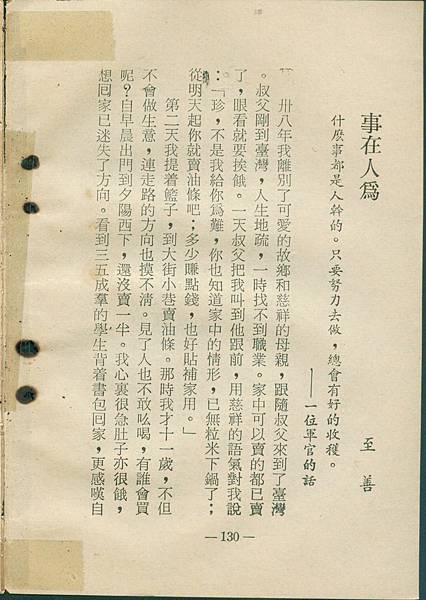 事在人爲
至善
什麽事都是人幹的。只要努力去做，總會有好的收穫。
——一位軍官的話
卅八年我離別了可愛的故鄉和慈祥的母親，跟隨叔父來到了臺灣
。叔父剛到臺灣，人生地疏，一時找不到職業。家中可以賣的都已賣
了，眼看就要挨餓。一天叔父把我叫到他跟前，用慈祥的語氣對我說
：「珍，不是我給你爲難，你也知道家中的情形，已無粒米下鍋了；
從明天起你就賣油條吧；多少賺點錢，也好貼補家用。」
第二天我提着籃子，到大街小巷賣油條。那時我才十一歲，不但
不會做生意，連走路的方向也摸不清。見了人也不敢吆喝，有誰會買
呢？自早晨出門到夕陽西下，還沒賣一半。我心裏很急肚子亦很餓，
想回家已迷失了方向。看到三五成羣的學生背着書包回家，更感嘆自
—130—